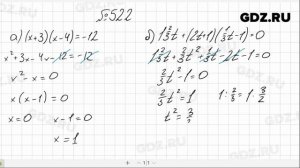 №522
GDZ.RU
а) (x+3)(x-4)=-12
x²+3x-4x-12=-12
x²-x=0
x(x-1)=0
x=0 x-1=0
x=1
б) 1⅔t+(2t+1)(⅓t-1)=0
1⅔t+⅔t²+⅓t-2t-1=0
⅔t²-1=0
⅔t²=1 1:⅔=1·3/2
t²=3/2
GDZ.RU